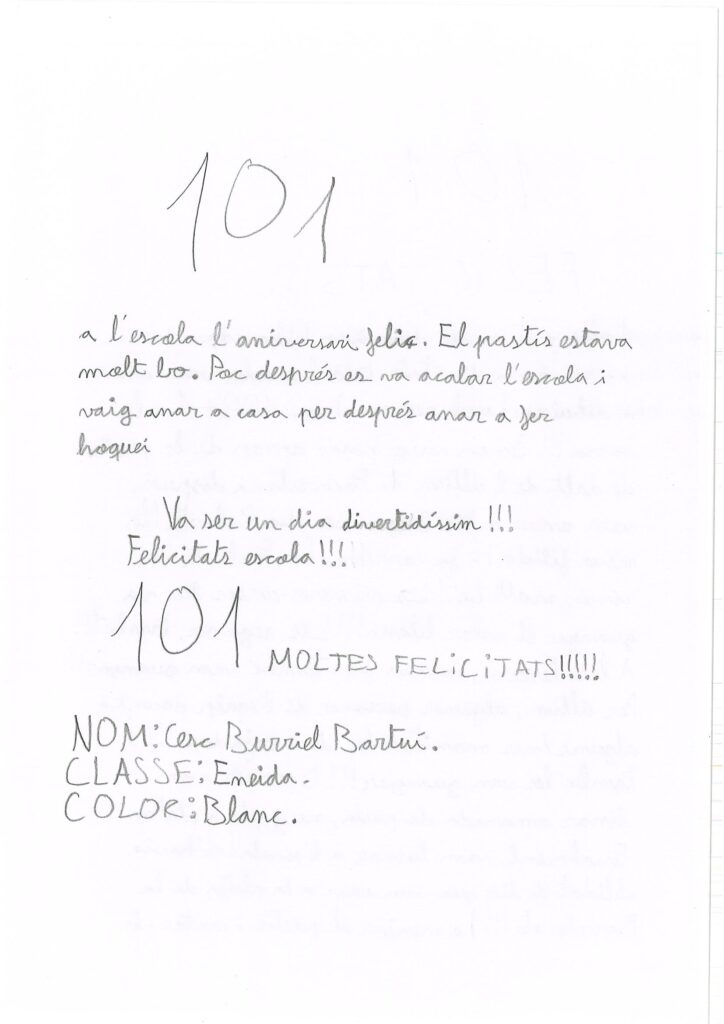 101
a l'escola l'aniversari feliç. El pastís estava
molt bo. Poc després es va acabar l'escola i
vaig anar a casa per després anar a fer
hoquei
Va ser un dia divertidíssim!!!
Felicitats escola!!!
101 MOLTES FELICITATS!!!!!
NOM: Cesc Burriel Bartui.
CLASSE: Eneida.
COLOR: Blanc.